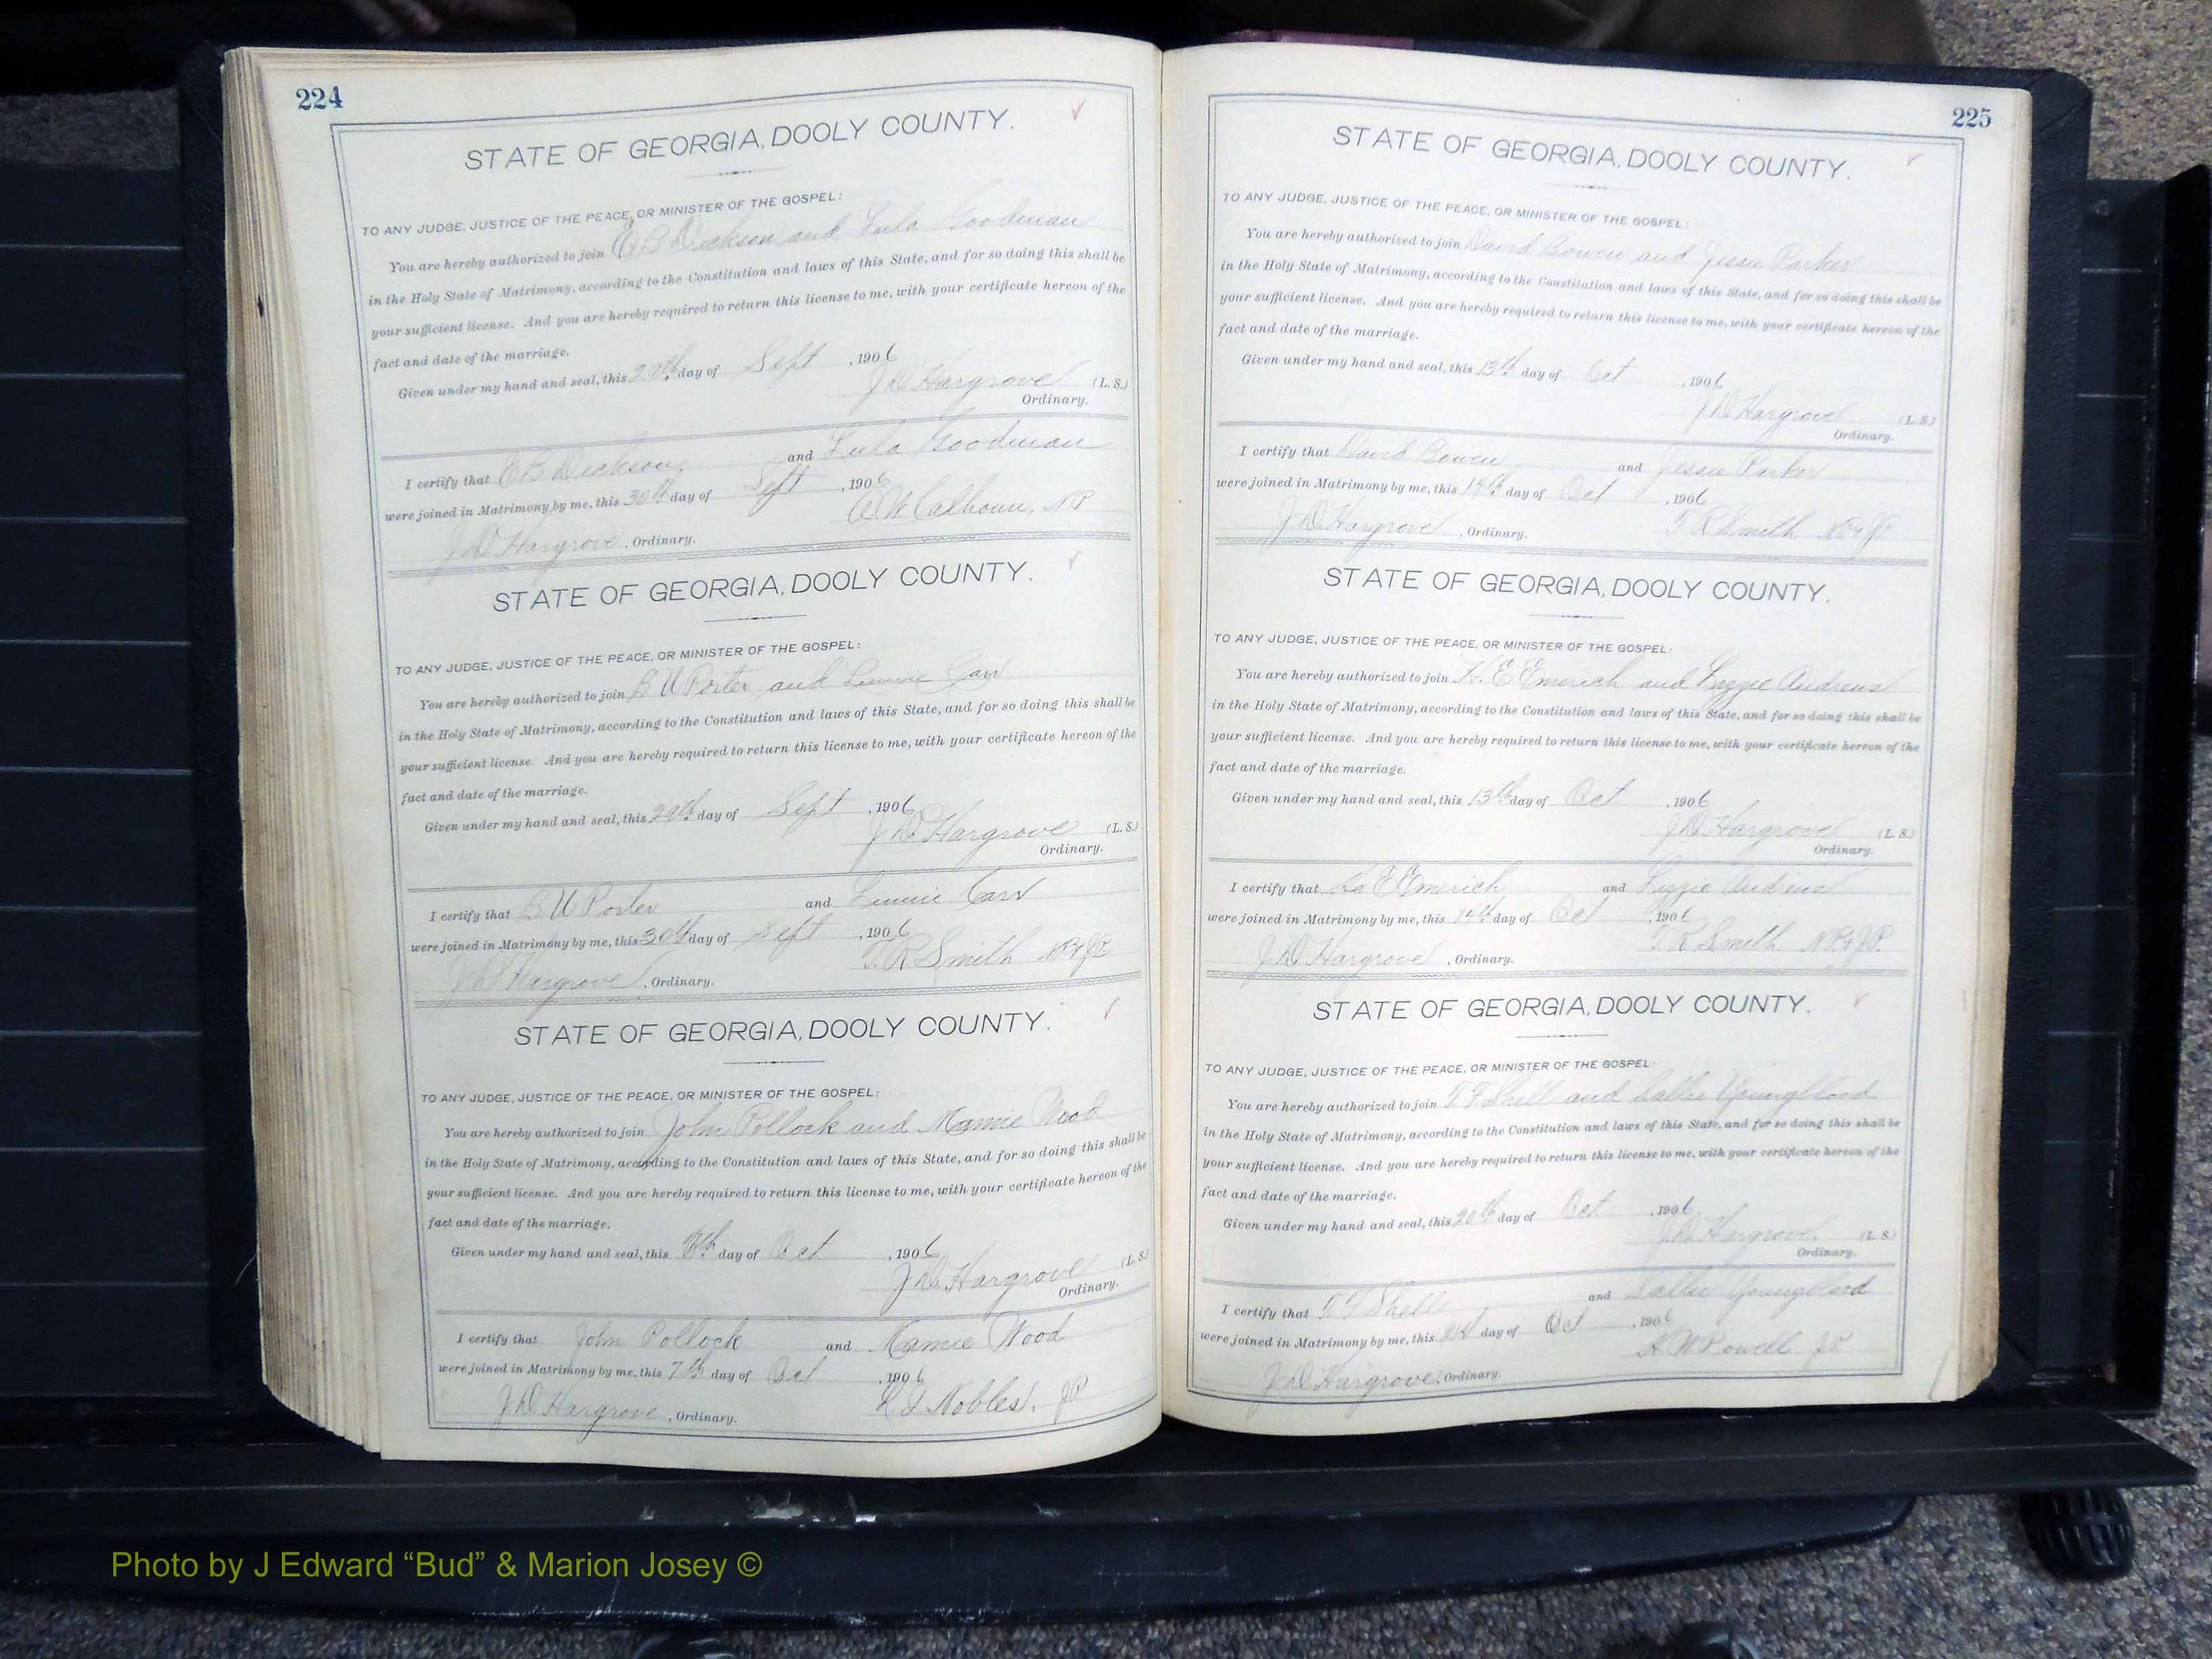 224
STATE OF GEORGIA, DOOLY COUNTY.
TO ANY JUDGE, JUSTICE OF THE PEACE, OR MINISTER OF THE GOSPEL:
You are hereby authorized to join E B Dickson and Lula Goodman
in the Holy State of Matrimony, according to the Constitution and laws of this State, and for so doing this shall be
your sufficient license. And you are hereby required to return this license to me, with your certificate hereon of the
fact and date of the marriage.
Given under my hand and seal, this 29th day of Sept, 1906
J D Hargrove (L. S.)
Ordinary.
I certify that E B Dickson and Lula Goodman
were joined in Matrimony by me, this 30th day of Sept, 1906
J D Hargrove, Ordinary. Calhoun, NP
STATE OF GEORGIA, DOOLY COUNTY.
TO ANY JUDGE, JUSTICE OF THE PEACE, OR MINISTER OF THE GOSPEL:
You are hereby authorized to join B W Porter and Linnie Carr
in the Holy State of Matrimony, according to the Constitution and laws of this State, and for so doing this shall be
your sufficient license. And you are hereby required to return this license to me, with your certificate hereon of the
fact and date of the marriage.
Given under my hand and seal, this 29th day of Sept, 1906
J D Hargrove (L. S.)
Ordinary.
I certify that B W Porter and Linnie Carr
were joined in Matrimony by me, this 30th day of Sept, 1906
J D Hargrove, Ordinary. T. R Smith NP & JP
STATE OF GEORGIA, DOOLY COUNTY.
TO ANY JUDGE, JUSTICE OF THE PEACE, OR MINISTER OF THE GOSPEL:
You are hereby authorized to join John Pollock and Mamie Wood
in the Holy State of Matrimony, according to the Constitution and laws of this State, and for so doing this shall be
your sufficient license. And you are hereby required to return this license to me, with your certificate hereon of the
fact and date of the marriage.
Given under my hand and seal, this day of Oct, 1906
J D Hargrove (L. S.)
Ordinary.
I certify that John Pollock and Mamie Wood
were joined in Matrimony by me, this 7th day of Oct, 1906
J D Hargrove, Ordinary. Nobles, JP
225
STATE OF GEORGIA, DOOLY COUNTY.
TO ANY JUDGE, JUSTICE OF THE PEACE, OR MINISTER OF THE GOSPEL:
You are hereby authorized to join David Bowen and Jessie Parker
in the Holy State of Matrimony, according to the Constitution and laws of this State, and for so doing this shall be
your sufficient license. And you are hereby required to return this license to me, with your certificate hereon of the
fact and date of the marriage.
Given under my hand and seal, this 13th day of Oct, 1906
J D Hargrove (L. S.)
Ordinary.
I certify that David Bowen and Jessie Parker
were joined in Matrimony by me, this 14th day of Oct, 1906
J D Hargrove, Ordinary. T. R Smith NP & JP
STATE OF GEORGIA, DOOLY COUNTY.
TO ANY JUDGE, JUSTICE OF THE PEACE, OR MINISTER OF THE GOSPEL:
You are hereby authorized to join H. E Emerich and Lizzie Andrews
in the Holy State of Matrimony, according to the Constitution and laws of this State, and for so doing this shall be
your sufficient license. And you are hereby required to return this license to me, with your certificate hereon of the
fact and date of the marriage.
Given under my hand and seal, this 13th day of Oct, 1906
J D Hargrove (L. S.)
Ordinary.
I certify that E Emerich and Lizzie Andrews
were joined in Matrimony by me, this 14th day of Oct, 1906
J D Hargrove, Ordinary. T. R Smith NP & JP.
STATE OF GEORGIA, DOOLY COUNTY.
TO ANY JUDGE, JUSTICE OF THE PEACE, OR MINISTER OF THE GOSPEL:
You are hereby authorized to join T F Shell and Sallie Youngblood
in the Holy State of Matrimony, according to the Constitution and laws of this State, and for so doing this shall be
your sufficient license. And you are hereby required to return this license to me, with your certificate hereon of the
fact and date of the marriage.
Given under my hand and seal, this 20th day of Oct, 1906
J D Hargrove (L. S.)
Ordinary.
I certify that T F Shell and Sallie Youngblood
were joined in Matrimony by me, this 21st day of Oct, 1906
J D Hargrove, Ordinary. Powell JP
Photo by J Edward “Bud” & Marion Josey ©